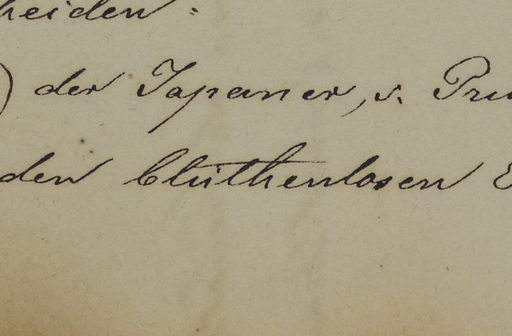 heiden:
) der Japaner, s. Pru
den blüthenlosen E